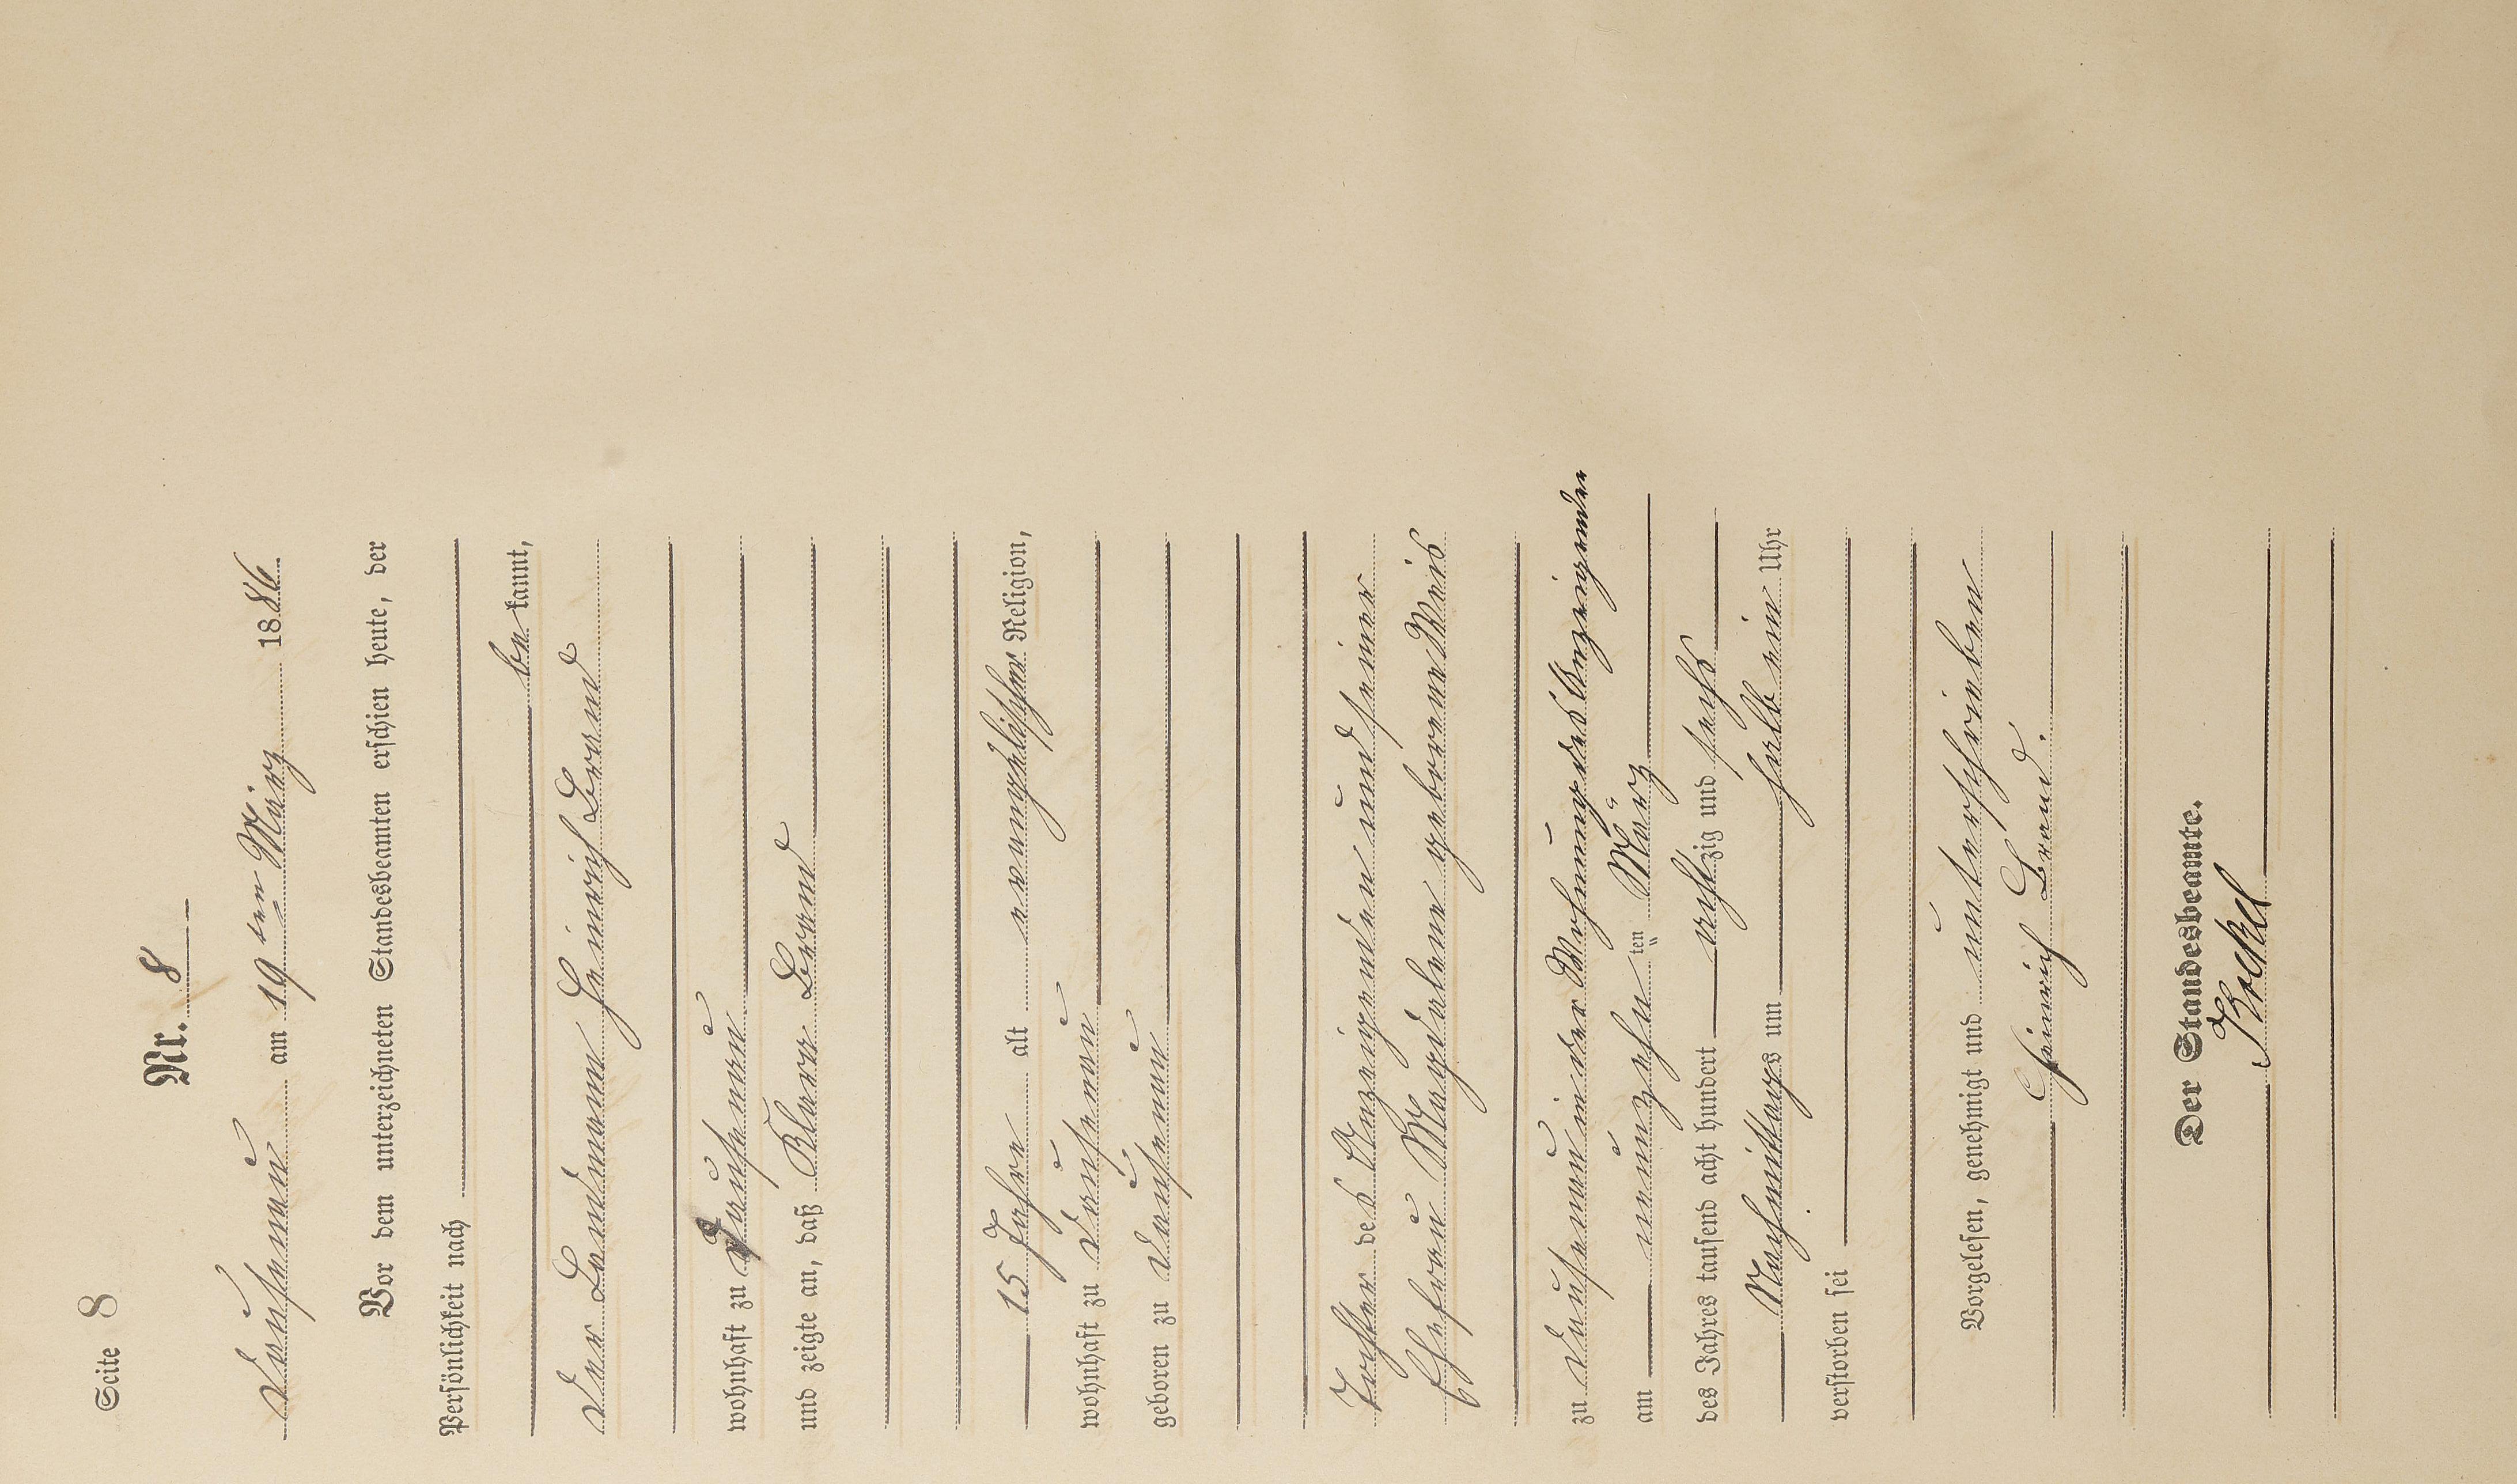 Seite 8
Nr. 8
Dausenau am 19ten März 1886.
Vor dem unterzeichneten Standesbeamten erschien heute, der
Persönlichkeit nach
be kannt,
der Landmann Heinrich Brand
wohnhaft zu Dausenau
und zeigte an, daß Klara Brand
15 Jahre alt evangelischer Religion,
wohnhaft zu Dausenau
geboren zu Dausenau
Tochter des Anzeigenden und seiner
Ehefrau Magdalene geborene Weis
zu Dausenau in der Wohnung des Anzeigenden
am neunzehn ten März
des Jahres tausend acht hundert achtzig und sechs
Nachmittags um halb ein Uhr
verstorben sei
Vorgelesen, genehmigt und unterschrieben
Heinrich Brand.
Der Standesbeamte.